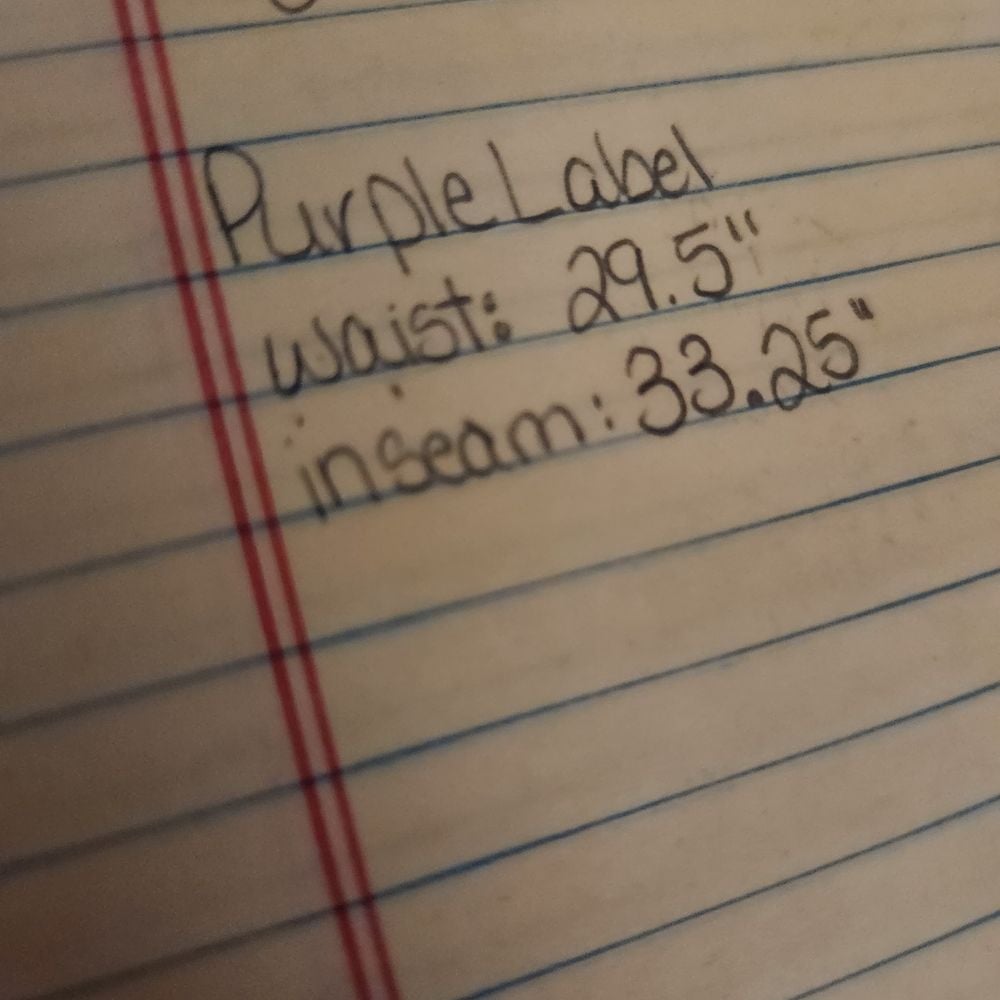 Purple Label
waist: 29.5"
inseam: 33.25"